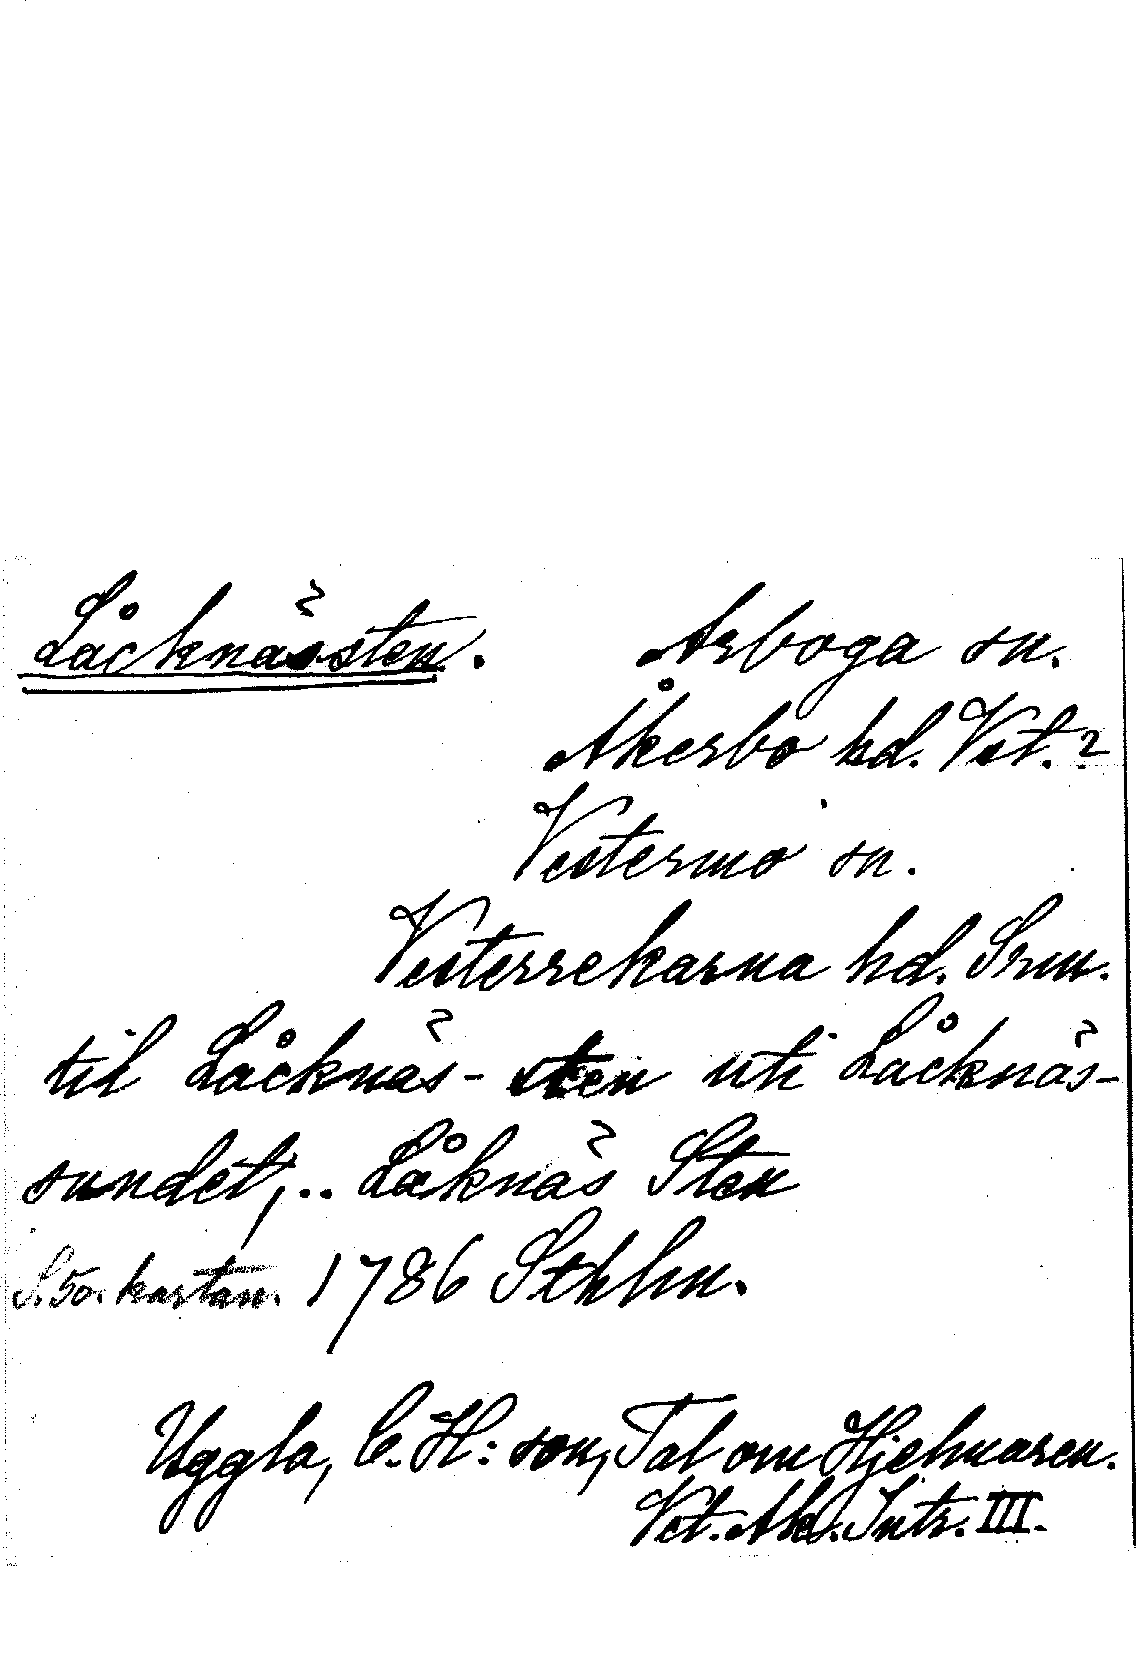 Låcknässten. Arboga sn.
Åkerbo hd. Vst.?
Vestermo sn.
Vesterrekarna hd. Srm.
til Låcknäs-sten uti Låcknäs-
sundet,.. Låknäs Sten
S. 50. kartan. 1786 Sthlm.
Uggla, C. H:son, Tal om Hjelmaren.
Vet. Ak. Intr. III.